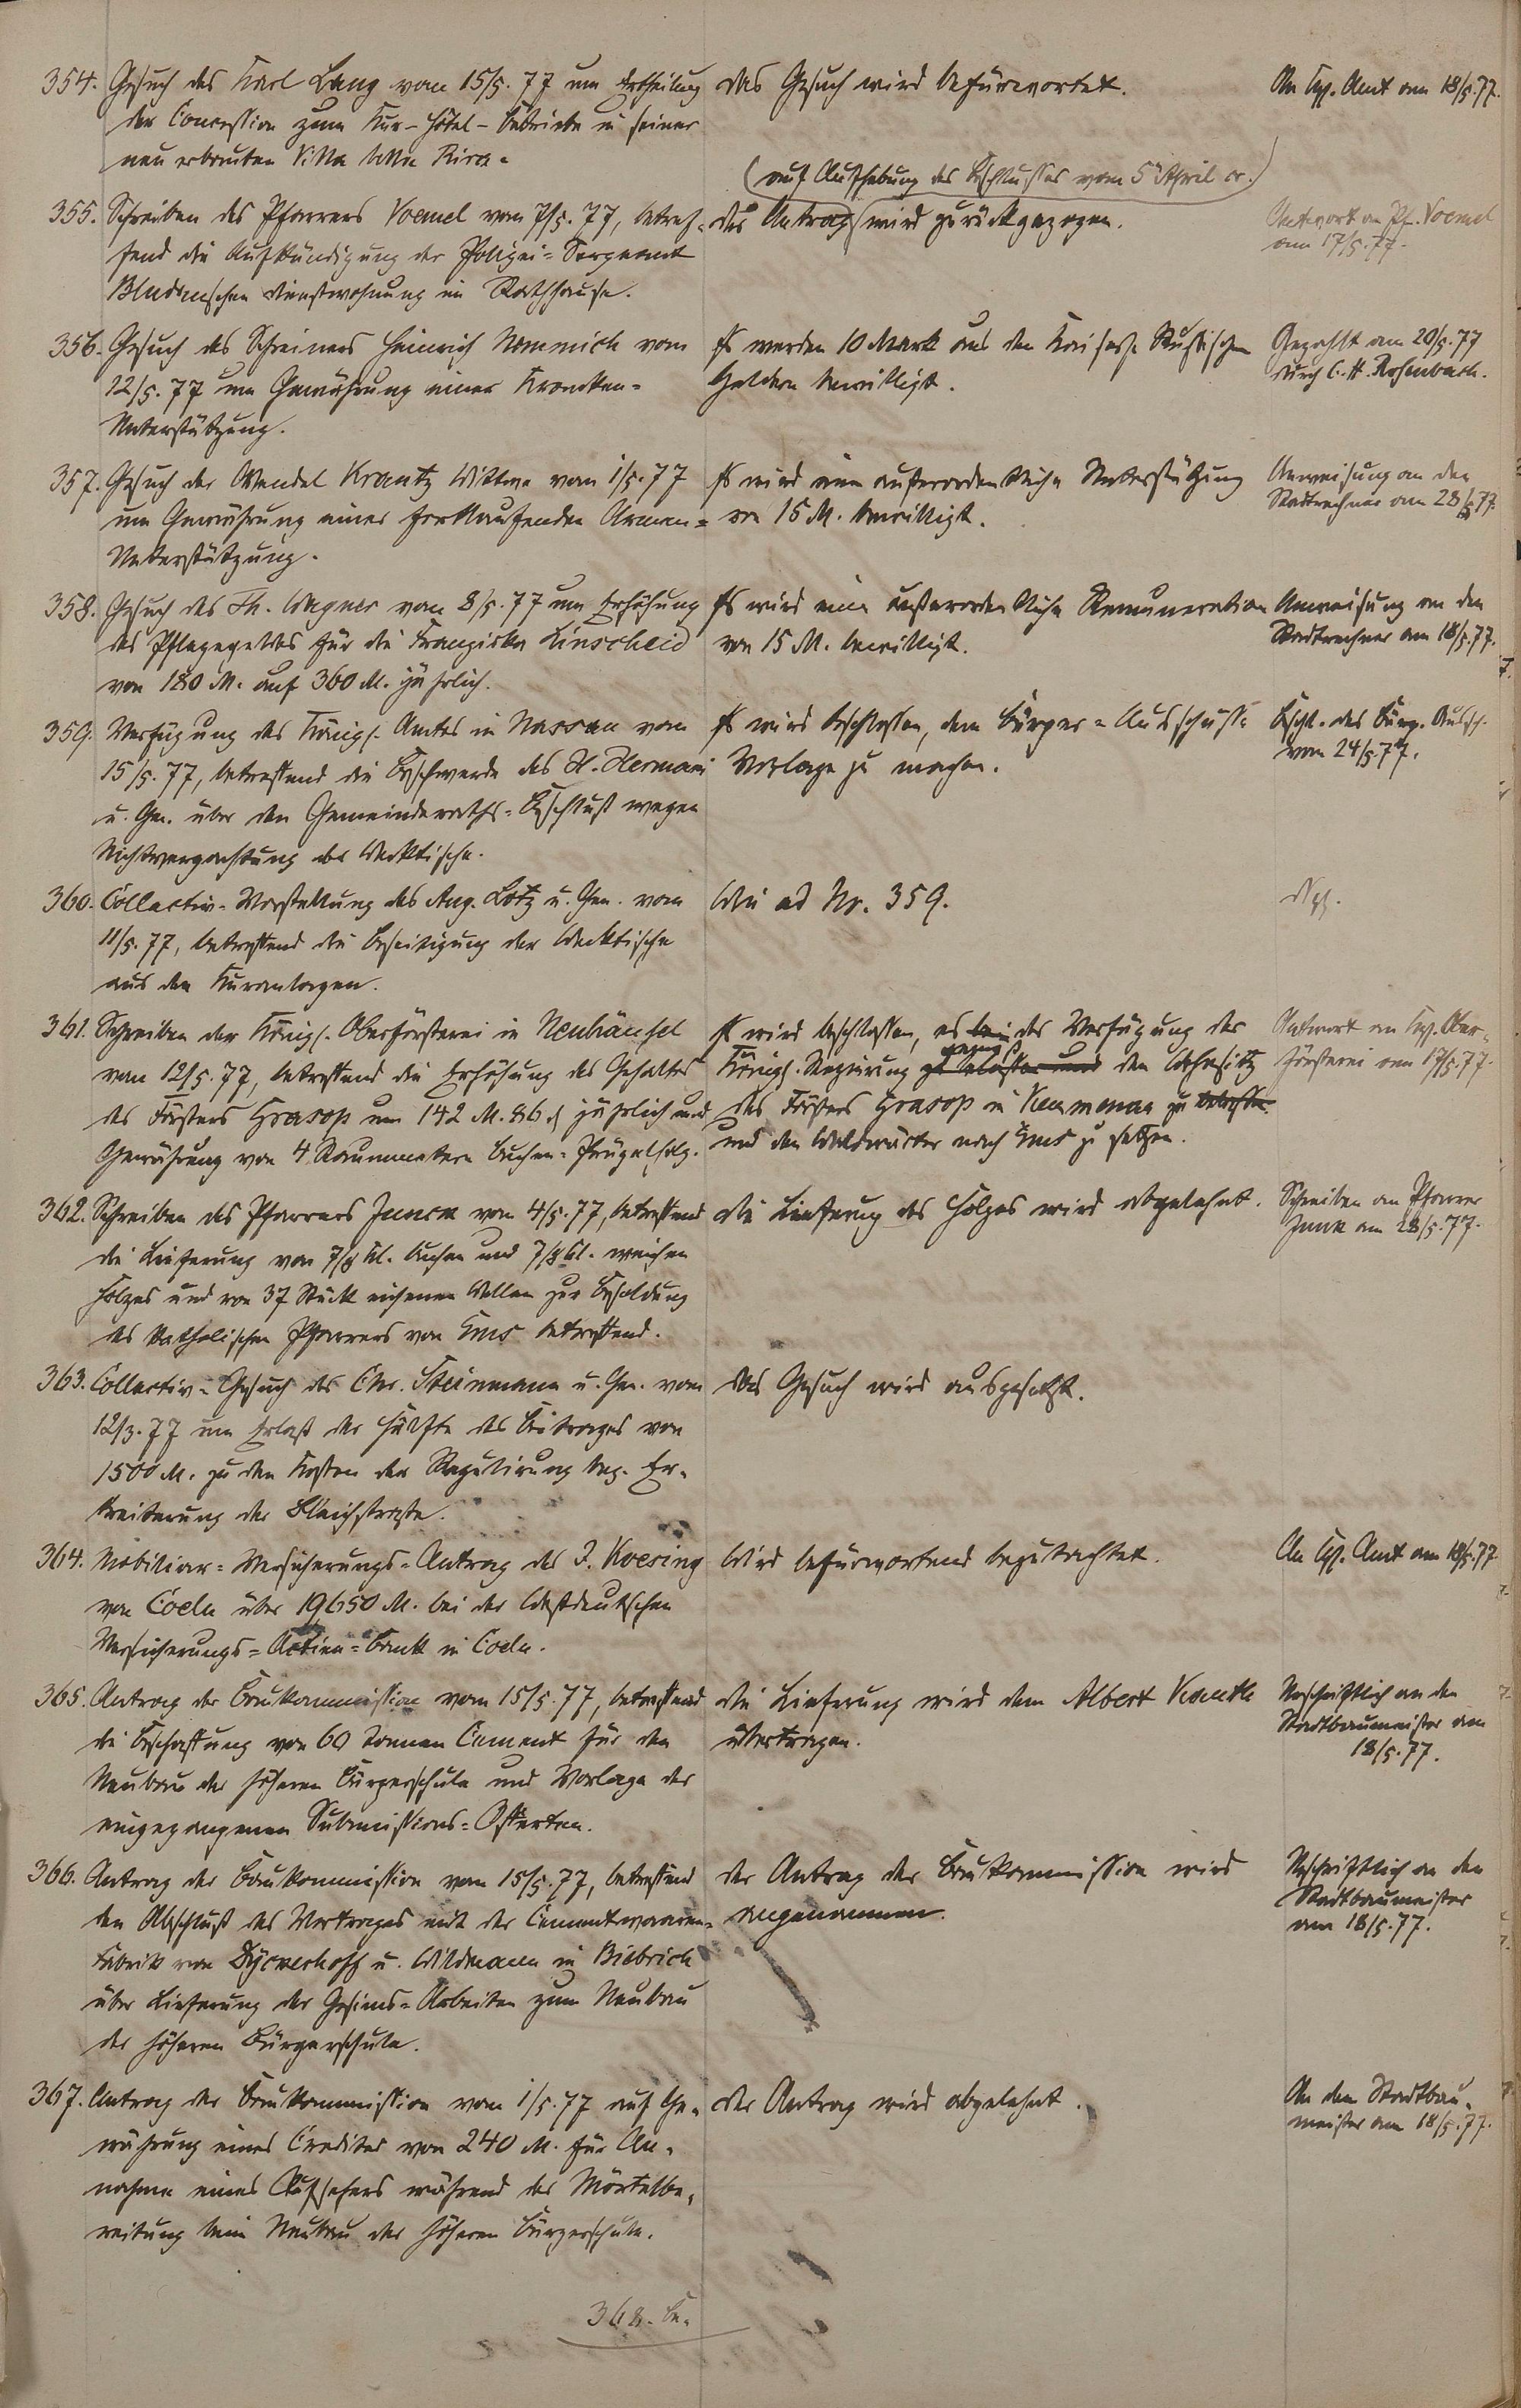 354. Gesuch des Karl Lang vom 15/5. 77 um Ertheilung
der Concession zum Kur-Hôtel-Betriebe in seiner
neu erbauten Villa bella Riva.
Das Gesuch wird befürwortet.
An Kgl. Amt am 18/5. 77.
355. Schreiben des Pfarrers Voemel vom 7/5. 77, betref-
fend die Aufkündigung der Polizei-Sergeant
Bludauschen Dienstwohnung im Rathhause.
(auf Aufhebung des Beschlusses vom 5. April cr.)
der Antrag wird zurückgezogen.
Antwort an Pf. Voemel
am 17/5. 77.
356. Gesuch des Schreiners Heinrich Nemnich vom
12/5. 77 um Gewährung einer Kranken-
Unterstützung.
Es werden 10 Mark aus den Kaiserl. Russischen
Geldern bewilligt.
Gezahlt am 20/5. 77
durch C. H. Rosenbach.
357. Gesuch der Wendel Krantz Wittwe vom 1/5. 77
um Gewährung einer fortlaufenden Armen-
Unterstützung.
Es wird eine außerordentliche Unterstützung
von 15 M. bewilligt.
Anweisung an den
Stadtrechner am 28/5 77.
358. Gesuch des Th. Wagner vom 8/5. 77 um Erhöhung
des Pflegegeldes für die Franziska Linscheid
von 180 M. auf 360 M. jährlich.
Es wird eine außerordentliche Remuneration
von 15 M. bewilligt.
Anweisung an den
Stadtrechner am 18/5. 77.
359. Verfügung des Königl. Amtes in Nassau vom
15/5. 77, betreffend die Beschwerde des H. Hermani
u. Gen. über den Gemeinderaths-Beschluß wegen
Nichtverpachtung der Decktische.
Es wird beschlossen, dem Bürger-Ausschusse
Vorlage zu machen.
Beschl. des Bürg. Aussch.
vom 24/5 77.
360. Collectiv-Vorstellung des Aug. Lotz u. Gen. vom
11/5. 77, betreffend die Beseitigung der Decktische
aus den Kuranlagen.
Wie ad No. 359.
Dgl.
361. Schreiben der Königl. Oberförsterei in Neuhäusel
vom 12/5. 77, betreffend die Erhöhung des Gehaltes
des Försters Grasop um 142 M. 86 ₰ jährlich und
Gewährung von 4 Raummetern Buchen-Prügelholz.
Es wird beschlossen, es bei der Verfügung der
Königl. Regierung zu belassen und den Wohnsitz
des Försters Grasop in Kemmenau zu belassen
und den Waldwärter nach Ems zu setzen.
Antwort an Kgl. Ober-
försterei am 17/5. 77.
362. Schreiben des Pfarrers Junck vom 4/5. 77, betreffend
die Lieferung von 7/8 Kl. buchen und 7/8 Kl. weichen
Holzes und von 37 Stück eichenen Wellen zur Besoldung
des katholischen Pfarrers von Ems betreffend.
die Lieferung des Holzes wird abgelehnt.
Schreiben an Pfarrer
Junk am 28/5. 77.
363. Collectiv-Gesuch des Chr. Steinmann u. Gen. vom
12/3. 77 um Erlaß der Hälfte des Beitrages von
1500 M. zu den Kosten der Regulirung bez. Er-
breiterung der Bleichstraße.
Das Gesuch wird ausgesetzt.
364. Mobiliar-Versicherungs-Antrag des J. Koesing
von Coeln über 19,650 M. bei der Westdeutschen
Versicherungs-Actien-Bank in Coeln.
Wird befürwortend begutachtet.
An Kgl. Amt am 18/5. 77
365. Antrag der Baukommission vom 15/5. 77, betreffend
die Beschaffung von 60 Tonnen Cement für den
Neubau der höheren Bürgerschule und Vorlage der
eingegangenen Submissions-Offerten.
die Lieferung wird dem Albert Kauth
übertragen.
Urschriftlich an den
Stadtbaumeister am
18/5. 77.
366. Antrag der Baukommission vom 15/5. 77, betreffend
den Abschluß des Vertrages mit der Cementwaaren-
Fabrik von Dyckerhoff u. Widmann in Biebrich
über Lieferung der Gesims-Arbeiten zum Neubau
der höheren Bürgerschule.
der Antrag der Baukommission wird
angenommen.
Urschriftlich an den
Stadtbaumeister
am 18/5. 77.
367. Antrag der Baukommission vom 1/5. 77 auf Ge-
währung eines Credites von 240 M. für An-
nahme eines Aufsehers während der Mörtelbe-
reitung beim Neubau der höheren Bürgerschule.
der Antrag wird abgelehnt.
An den Stadtbau-
meister am 18/5. 77.
368. Be-